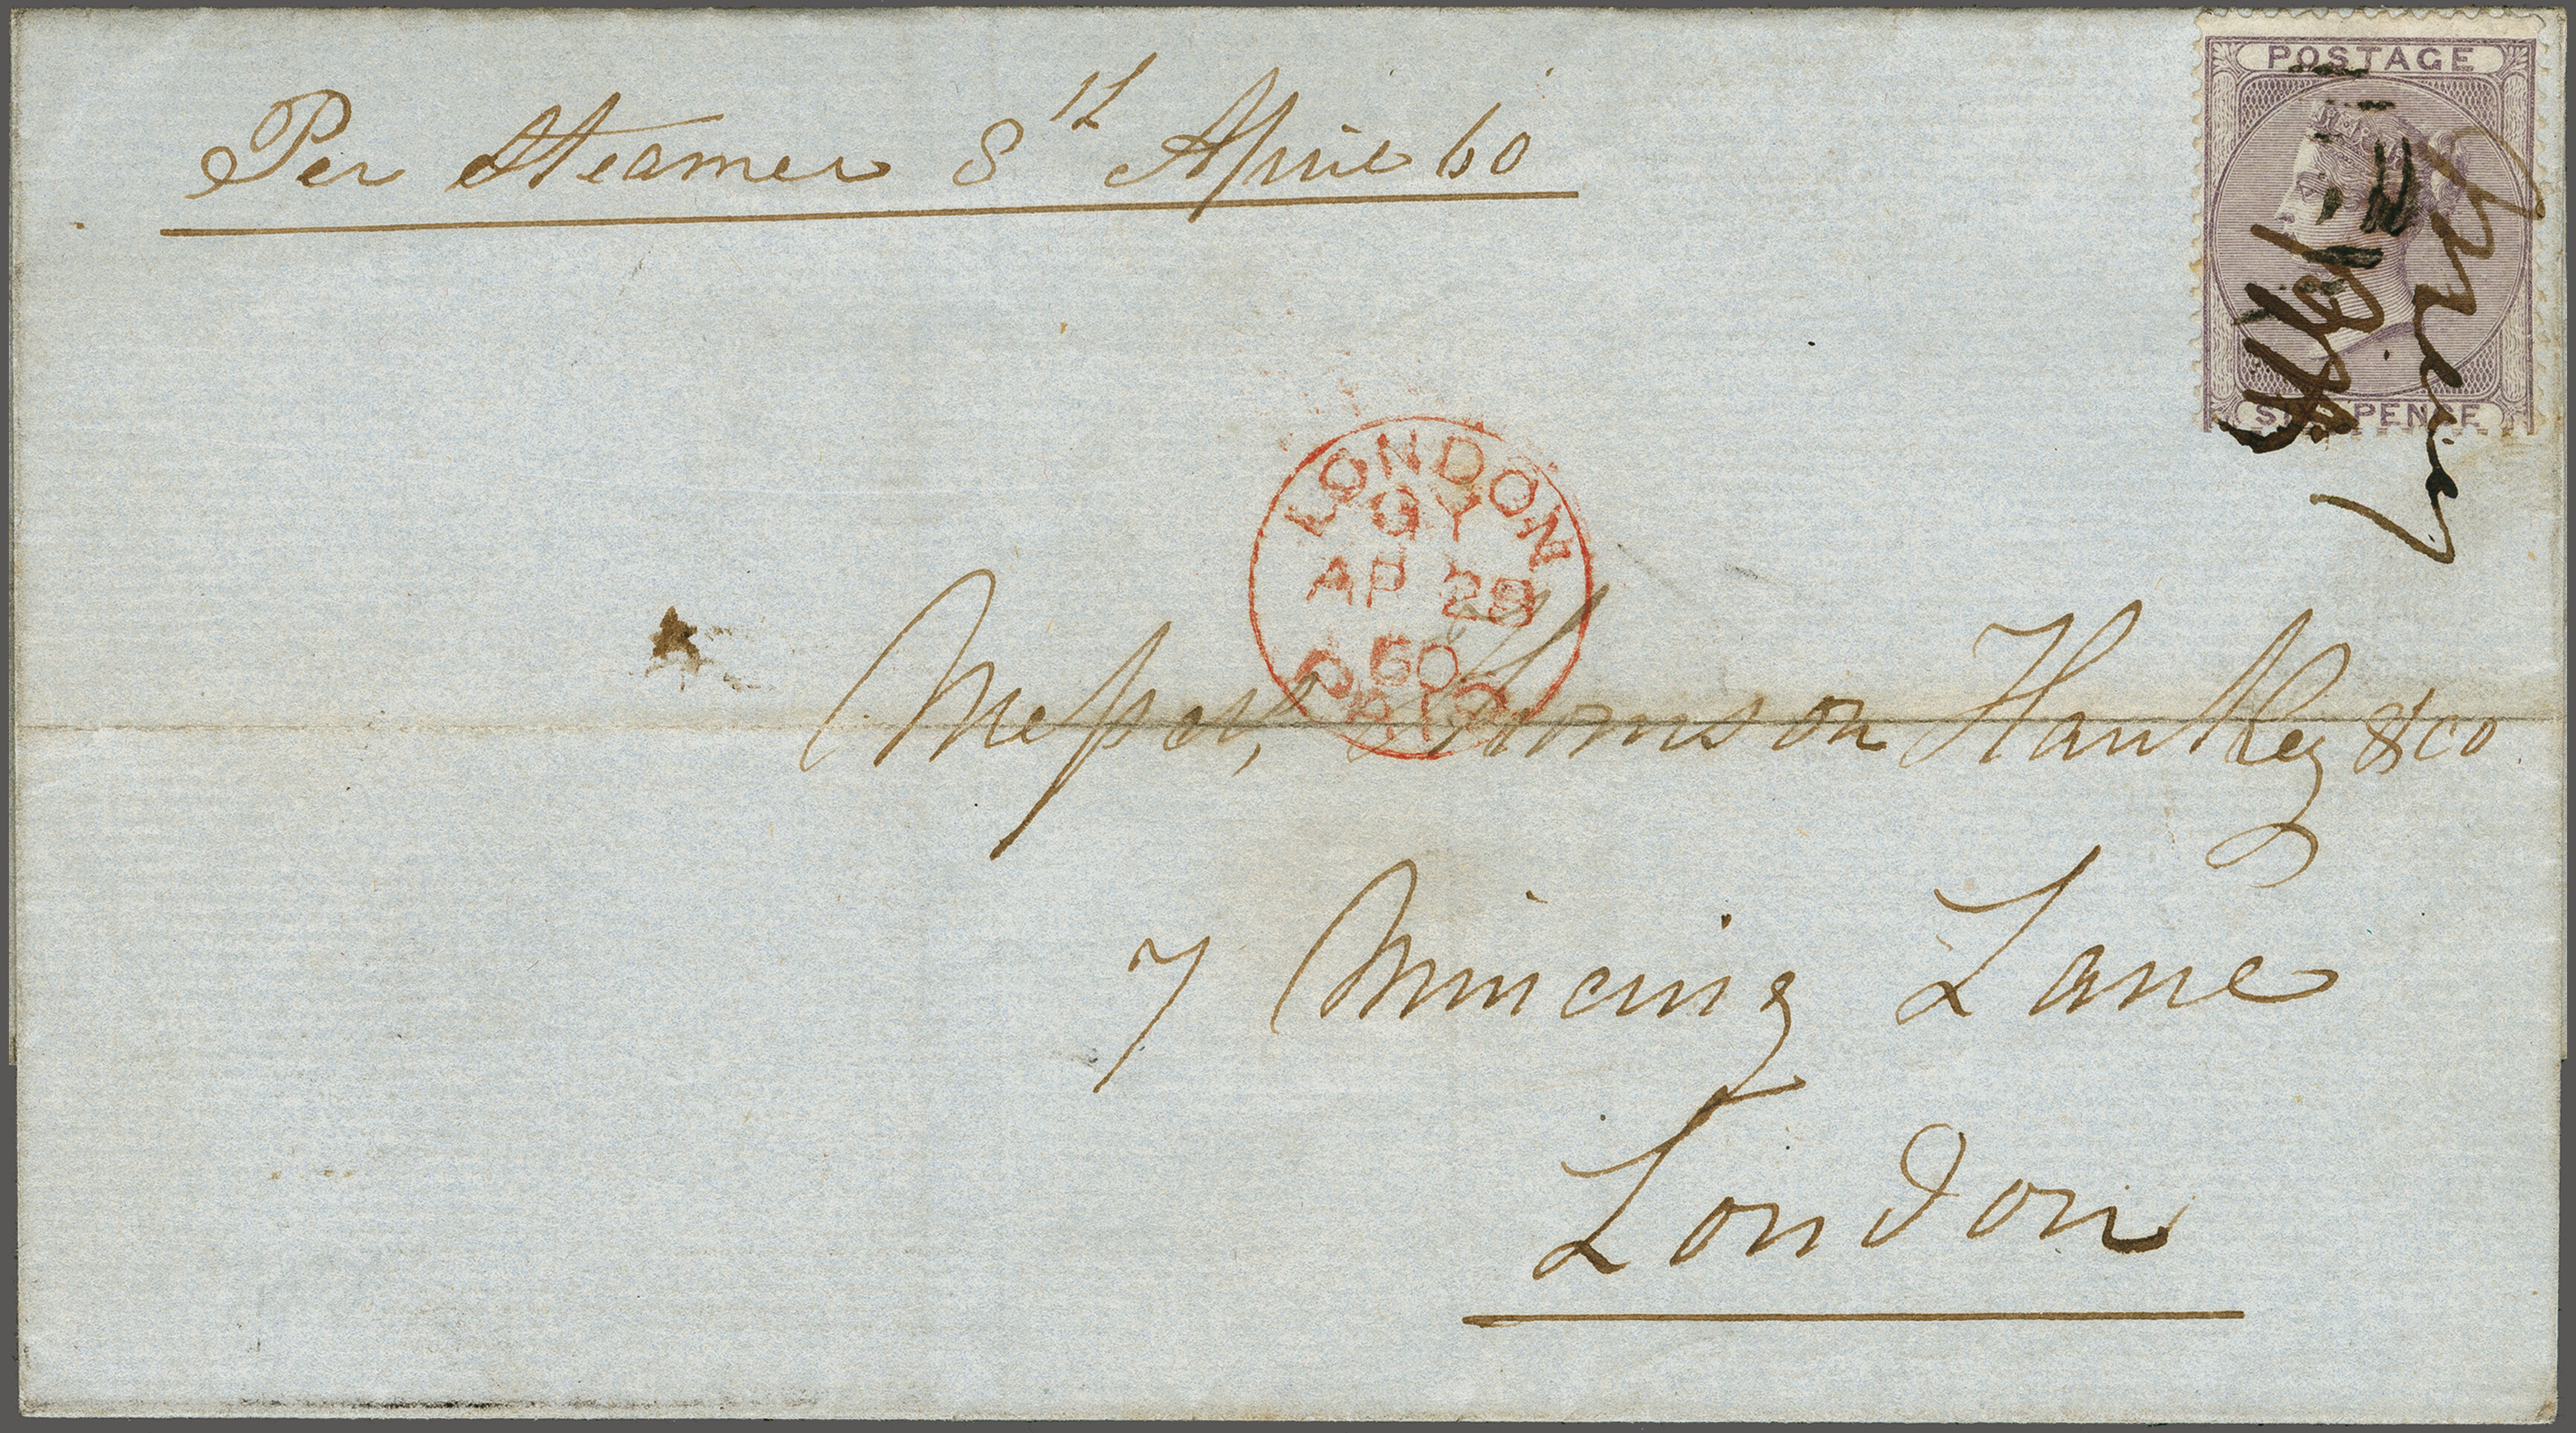 Per Steamer 8th April 60
POSTAGE
SIX PENCE
LONDON
GY
AP 28
60
PAID
Messrs, Thomson Hankey & co
7 Mincing Lane
London